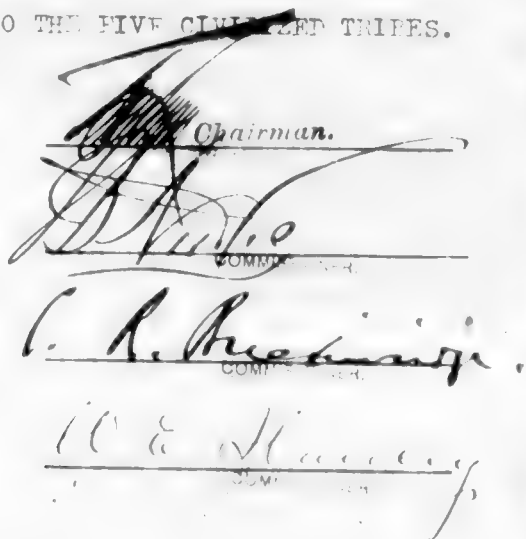 O THE FIVE CIVILIZED TRIBES.
Chairman.
COMMISSIONER.
C. R. Breckinridge.
COMMISSIONER.
W. E. Stanley
COMMISSIONER.